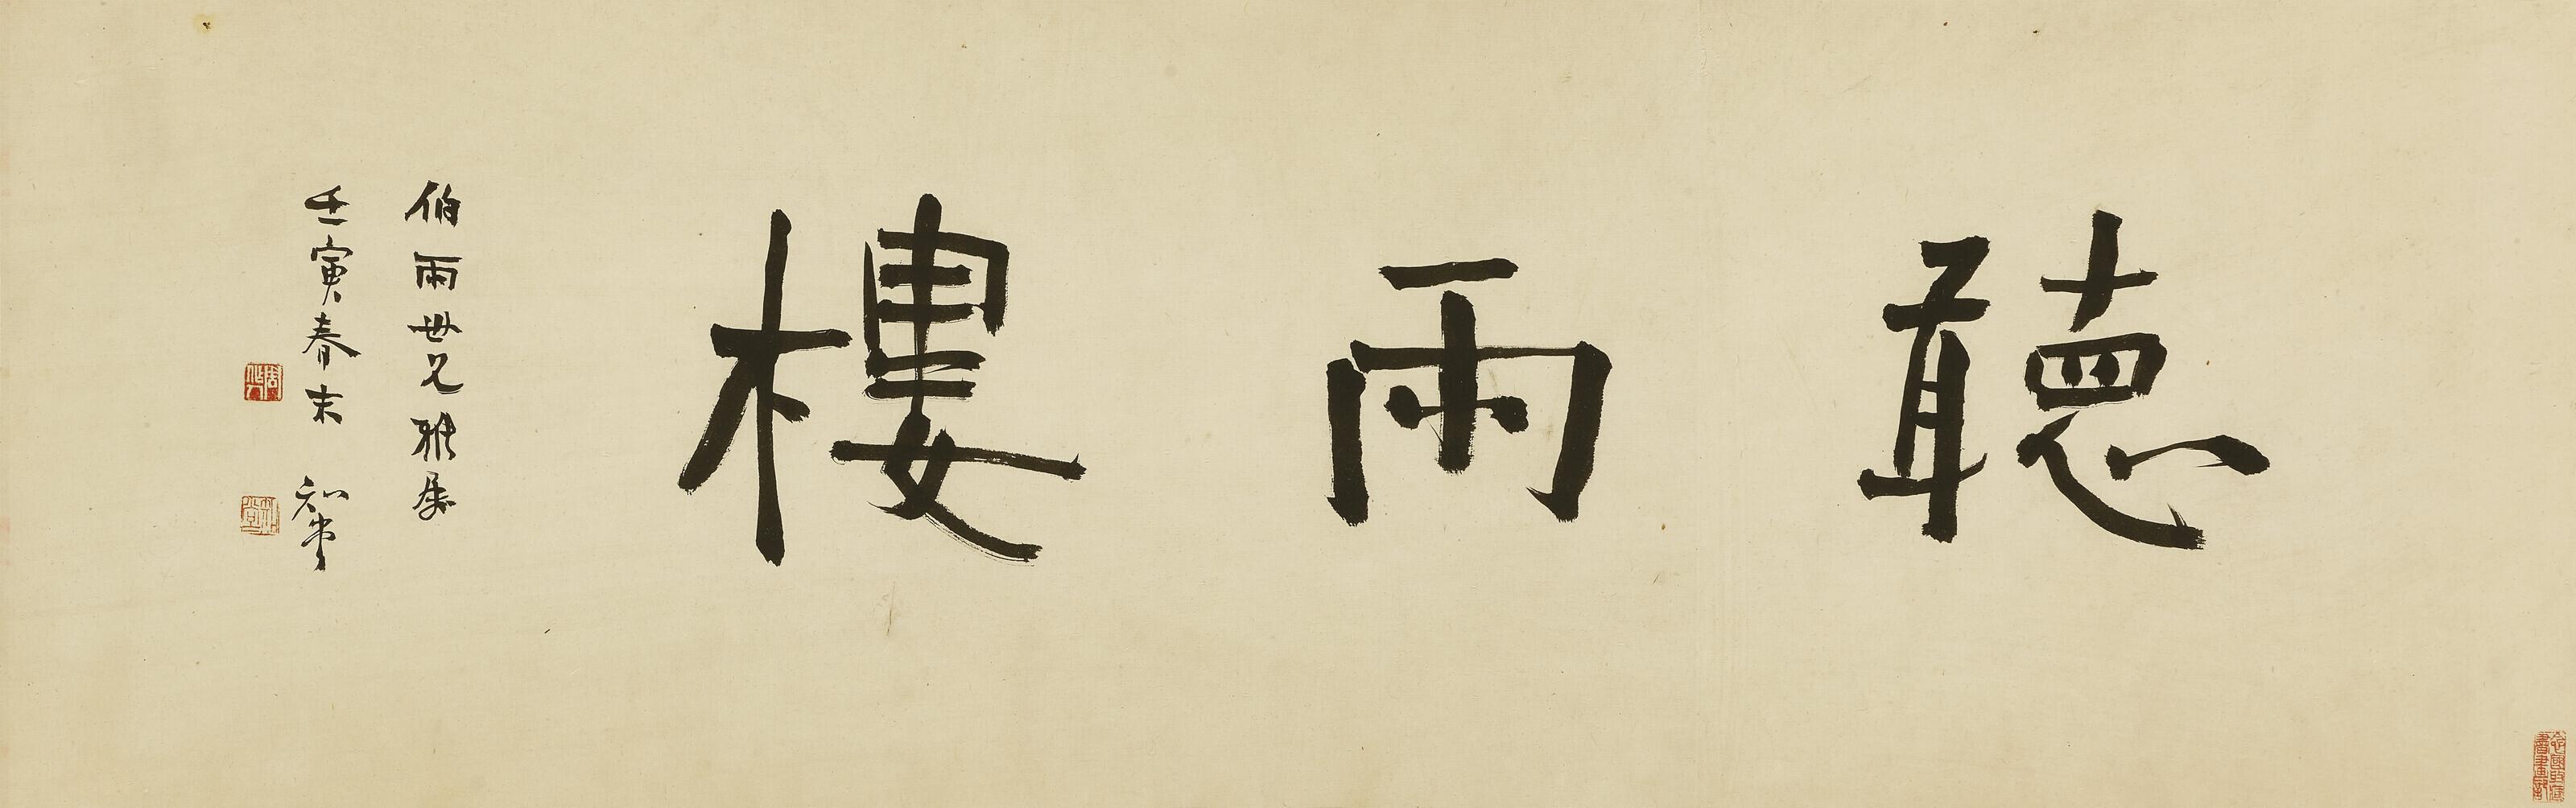 聽雨樓
伯雨世兄雅屬
壬寅春末 知堂
周作人